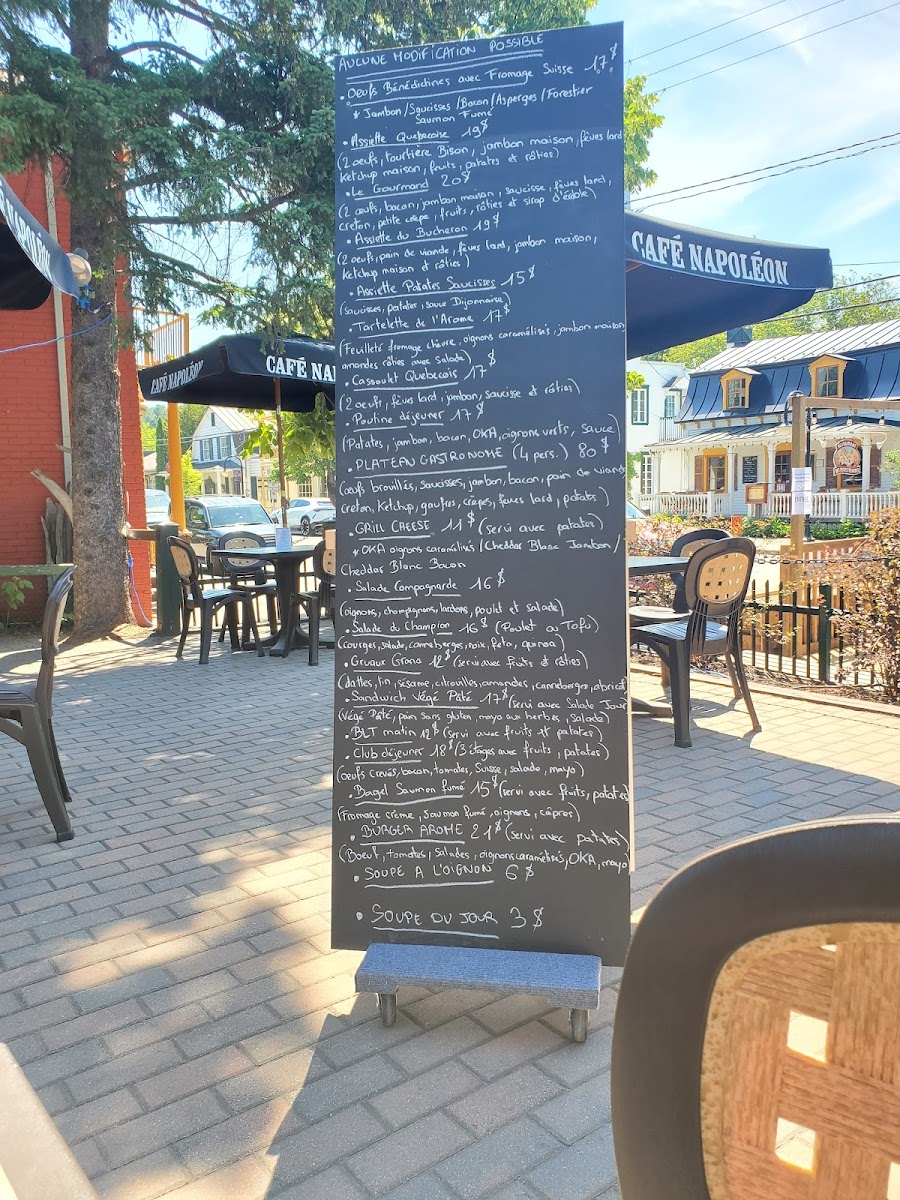 AUCUNE MODIFICATION POSSIBLE
• Oeufs Bénédictines avec Fromage Suisse 17$
* Jambon/Saucisses/Bacon/Asperges/Forestier
Saumon Fumé
• Assiette Quebecoise 19$
(2 oeufs, tourtière Bison, jambon maison, fèves lard
Ketchup maison, fruits, patates et rôties)
• Le Gourmand 20$
(2 oeufs, bacon, jambon maison, saucisse, fèves lard,
creton, petite crèpe, fruits, rôties et sirop d'érable)
• Assiette du Bucheron 19$
(2 oeufs, pain de viande, fèves lard, jambon maison,
Ketchup maison et rôties)
• Assiette Patates Saucisses 15$
(saucisses, patates, sauce Dijonnaise)
• Tartelette de l'Arome 17$
(Feuilleté fromage chèvre, oignons caramélisés, jambon maison
amandes rôties avec salade)
• Cassoulet Quebecois 17$
(2 oeufs, fèves lard, jambon, saucisse et rôties)
• Poutine déjeuner 17$
(Patates, jambon, bacon, OKA, oignons verts, sauce)
• PLATEAU GASTRONOME (4 pers.) 80$
(oeufs brouillés, saucisses, jambon, bacon, pain de viande
creton, Ketchup, gaufres, crèpes, fèves lard, patates)
• GRILL CHEESE 11$ (servi avec patates)
* OKA oignons caramélisés / Cheddar Blanc Jambon /
Cheddar Blanc Bacon
• Salade Campagnarde 16$
(oignons, champignons, lardons, poulet et salade)
• Salade du Champion 16$ (Poulet ou Tofu)
(courges, salade, canneberges, noix, feta, quinoa)
• Gruaux Grano 12$ (servi avec fruits et rôties)
(dattes, lin, sésame, citrouilles, amandes, canneberges, abricot
• Sandwich Végé Pâté 17$ (servi avec Salade Jour)
(Végé Pâté, pain sans gluten, mayo aux herbes, salade)
• BLT matin 12$ (servi avec fruits et patates)
• Club déjeuner 18$ (3 étages avec fruits, patates)
(oeufs crevés, bacon, tomates, Suisse, salade, mayo)
• Bagel Saumon fumé 15$ (servi avec fruits, patates)
(Fromage crème, saumon fumé, oignons, câpres)
• BURGER AROME 21$ (servi avec patates)
(Boeuf, tomates, salades, oignons caramélisés, OKA, mayo)
• SOUPE A L'OIGNON 6$
• SOUPE DU JOUR 3$
CAFÉ NAPOLÉON
CAFÉ NAPOLÉON
CAFÉ NA
NAPOLÉON